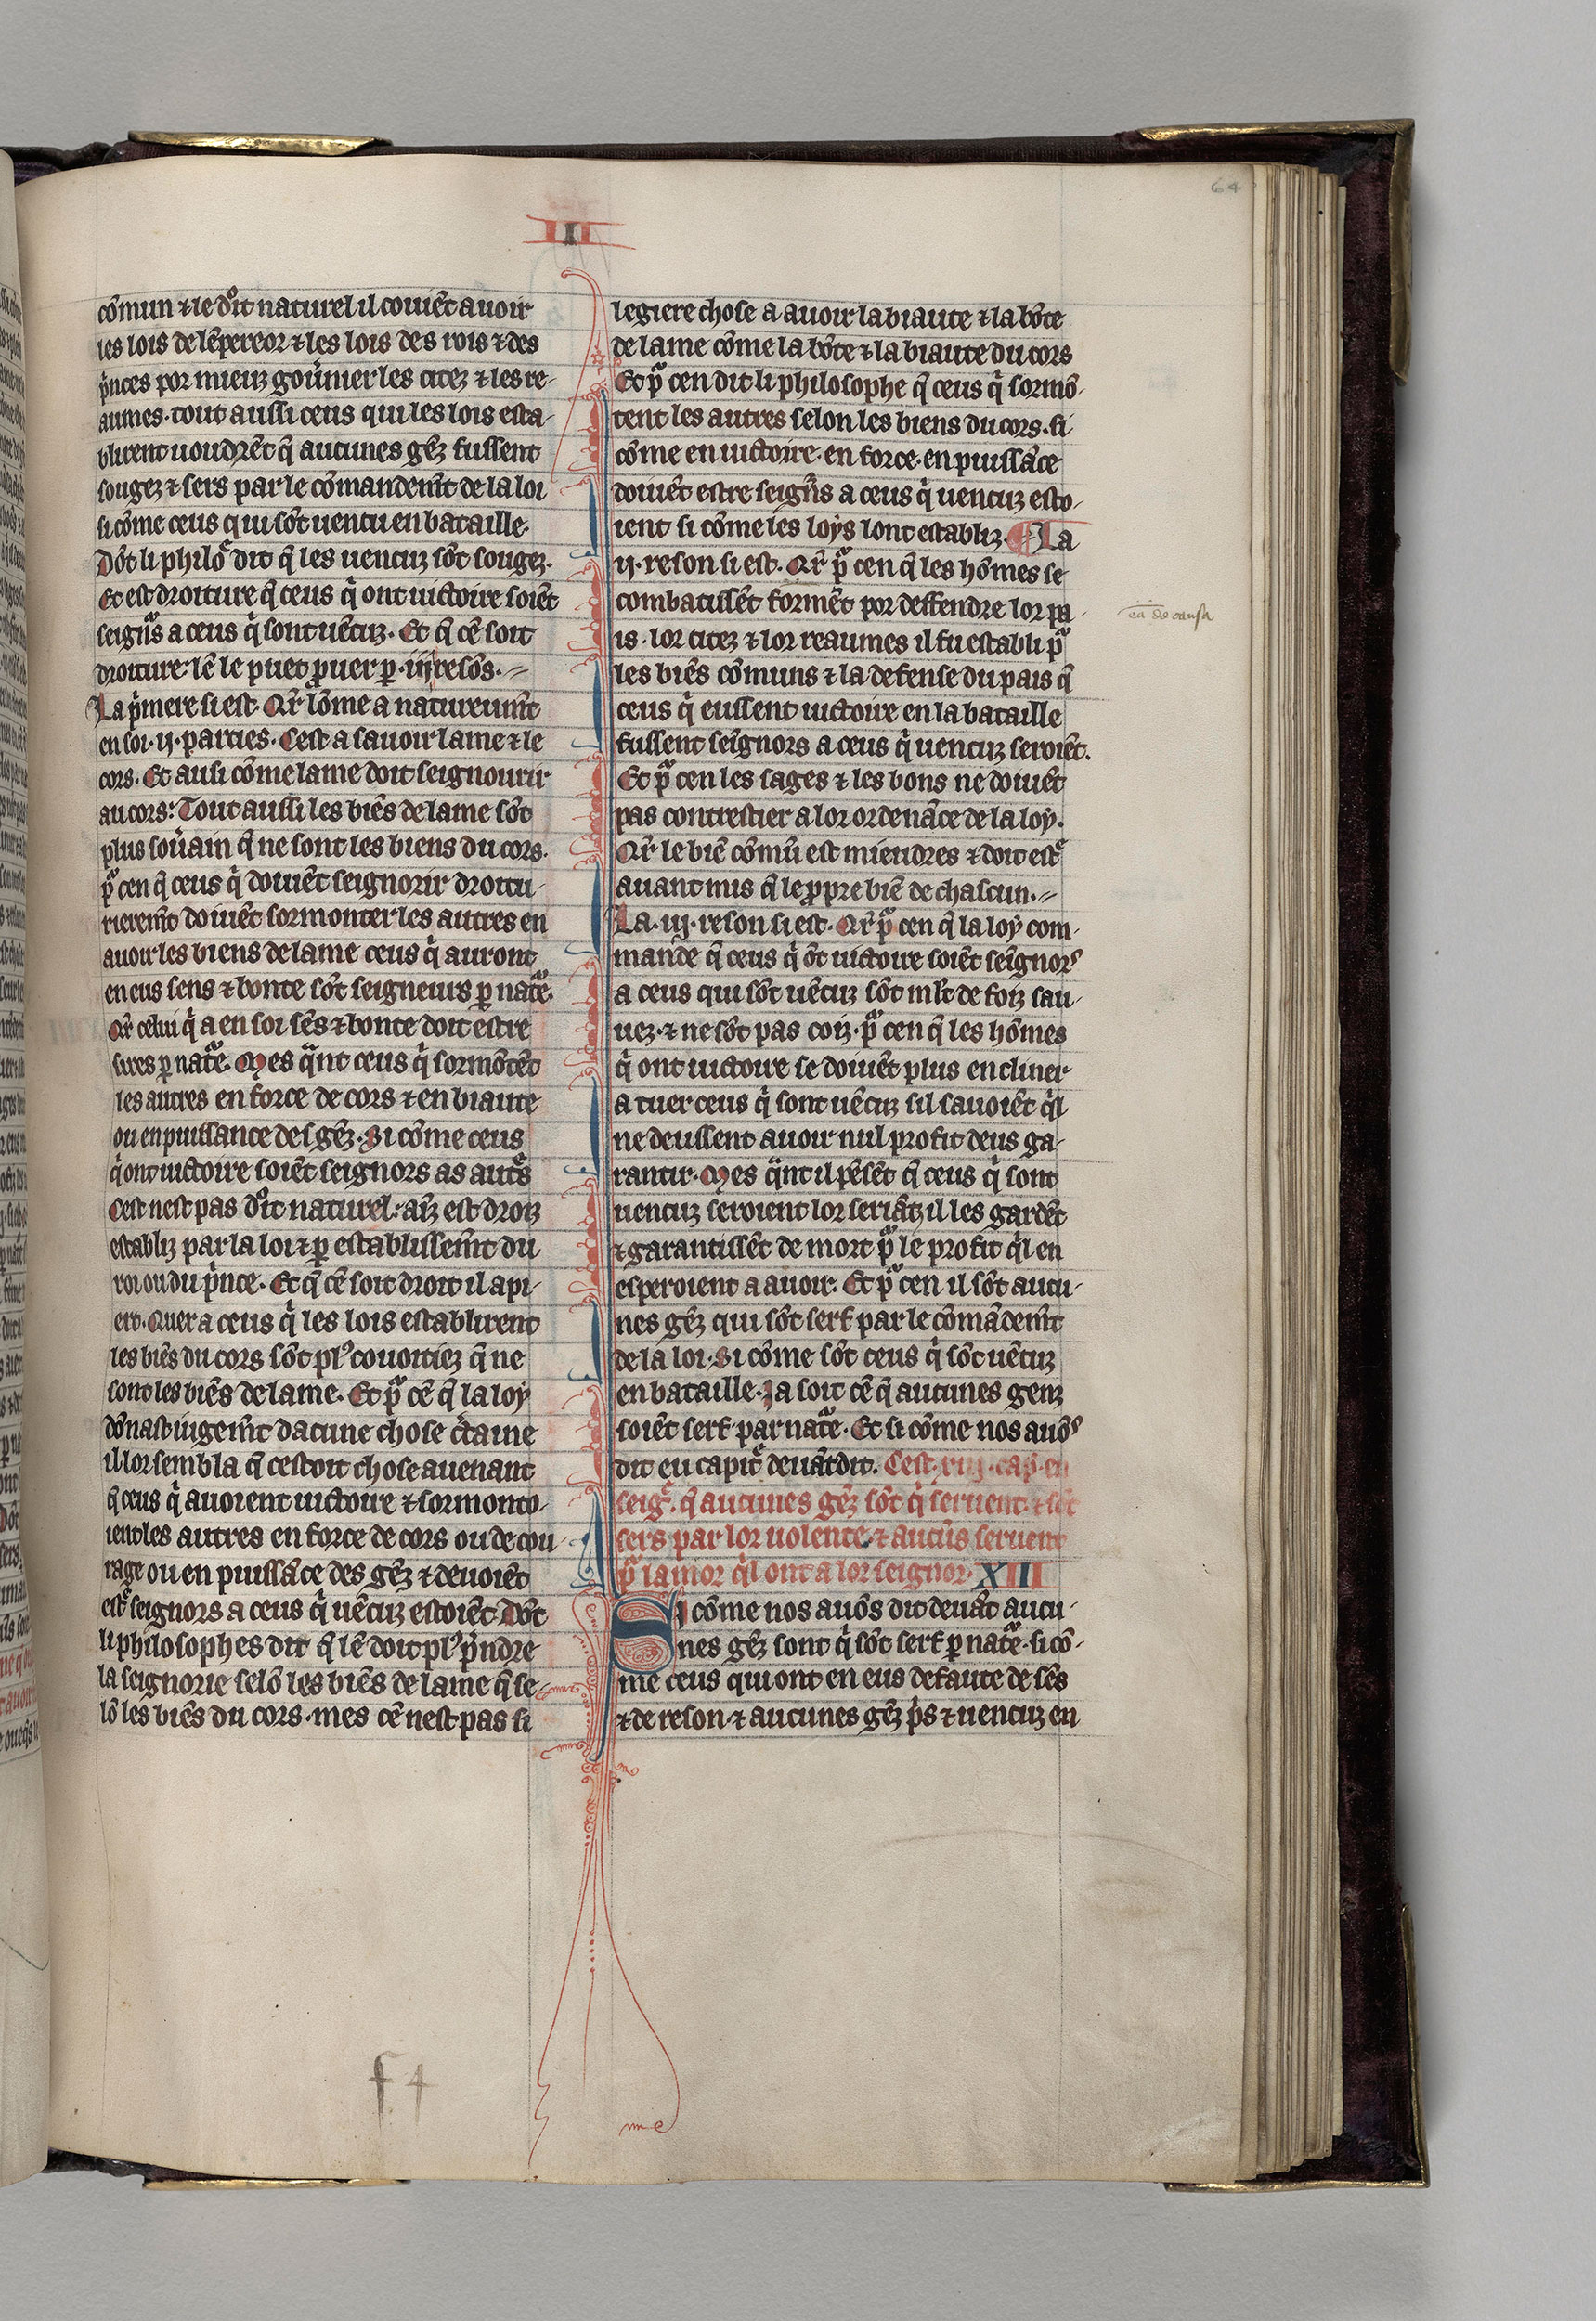 64
III
cōmun ⁊ le dͦit naturel il couiēt auoir
les lois de lēpereor ⁊ les lois des rois ⁊ des
pͥnces por mieuz gouu̾ner les citez ⁊ les re-
aumes. tout aussi ceus qui les lois esta-
blirent uoudrēt q̄ aucunes gēz fussent
sougez ⁊ sers par le cōmandem̄t de la loi
si cōme ceus qui sōt uencu en bataille.
Dōt li philoͤ dit q̄ les uencuz sōt sougez.
Et est droiture q̄ ceus qͥ ont uictoire soiēt
seigñs a ceus qͥ sont uēcuz. Et q̄ cē soit
droiture. lē le puet ꝓuer ꝑ .iij. resōs.
La pͥmere si est. Qr̄ lōme a natureum̄t
en soi .ij. parties. Cest a sauoir lame ⁊ le
cors. Et ausi cōme lame doit seignourir
au cors: Tout aussi les biēs de lame sōt
plus sou̾ain q̄ ne sont les biens du cors.
pͣ cen q̄ ceus qͥ doiuēt seignorir droitu-
rierem̄t doiuēt sormonter les autres en
auoir les biens de lame ceus qͥ auront
en eus sens ⁊ bonte sōt seigneurs ꝑ natͣe.
Qr̄ celui qͥ a en soi sēs ⁊ bonte doit estre
sires ꝑ natͣe. Mes qͣnt ceus qͥ sormōtēt
les autres en force de cors ⁊ en biaute
ou en puissance des gēz. Si cōme ceus
qͥ ont uictoire soiēt seignors as autͤs
Cest nest pas dͦit naturel. aīz est droiz
establiz par la loi ⁊ ꝑ establissem̄t du
roi ou du pͥnce. Et q̄ cē soit droit il api-
ert. Quer a ceus qͥ les lois establirent
les biēs du cors sōt plꝰ couoitiez q̄ ne
sont les biēs de lame. Et pͣ cē q̄ la loy
dōnast iugem̄t dacune chose c̾taine
il lor sembla q̄ cestoit chose auenant
q̄ ceus qͥ auoient uictoire ⁊ sormonto-
ient les autres en force de cors ou de cou-
rage ou en puissāce des gēz ⁊ deuoiēt
estͤ seignors a ceus qͥ uēcuz estoiēt. Dōt
li philosophes dit q̄ lē doit plꝰ pͥndre
la seignorie selō les biēs de lame q̄ se-
lō les biēs du cors. mes cē nest pas si
legiere chose a auoir la biaute ⁊ la bōte
de lame cōme la bōte ⁊ la biaute du cors
Et pͣ cen dit li philosophe q̄ ceus qͥ sormō-
tent les autres selon les biens du cors. si
cōme en uictoire. en force. en puissāce
doiuēt estre seigñs a ceus qͥ uencuz esto-
ient si cōme les loys lont establiz. ¶ La
ij. reson si est. Qr̄ pͣ cen q̄ les hōmes se
combatissēt formēt por deffendre lor pa-
is. lor citez ⁊ lor reaumes il fu establi pͣ
les biēs cōmuns ⁊ la defense du pais q̄
ceus qͥ eussent uictoire en la bataille
fussent seignors a ceus qͥ uencuz seroiēt.
Et pͣ cen les sages ⁊ les bons ne doiuēt
pas contrestier a lor ordenāce de la loy.
Qr̄ le biē cōmū est mieudres ⁊ doit estͤ
auant mis q̄ le ꝓpre biē de chascun.
La .iij. reson si est. Qr̄ pͣ cen q̄ la loy com-
mande q̄ ceus qͥ ōt uictoire soiēt seignors
a ceus qui sōt uēcuz sōt ml̄t de foiz sau-
uez. ⁊ ne sōt pas coiz. pͣ cen q̄ les hōmes
qͥ ont uictoire se doiuēt plus encliner
a tuer ceus qͥ sont uēcuz sil sauoiēt qͥl
ne deussent auoir nul profit deus ga-
rantir. Mes qͣnt il pēsēt q̄ ceus qͥ sont
uencuz seroient lor seriātz il les gardēt
⁊ garantissēt de mort pͣ le profit qͥl en
esperoient a auoir. Et pͣ cen il sōt aucu-
nes gēz qui sōt serf par le cōmādem̄t
de la loi. Si cōme sōt ceus qͥ sōt uēcuz
en bataille. Ja soit cē q̄ aucunes genz
soiēt serf par natͣe. Et si cōme nos auōs
dit eu capitͤ deuāt dit. Cest .xiij. cap. en
seigͤ. q̄ aucunes gēz sōt qͥ seruent ⁊ sōt
sers par lor uolente ⁊ aucūs seruent
pͣ lamor qͥl ont a lor seignor. XIII
Si cōme nos auōs dit deuāt aucu-
nes gēz sont qͥ sōt serf ꝑ natͣe. si cō-
me ceus qui ont en eus defaute de sēs
⁊ de reson ⁊ aucunes gēz pͥs ⁊ uencuz en
f 4